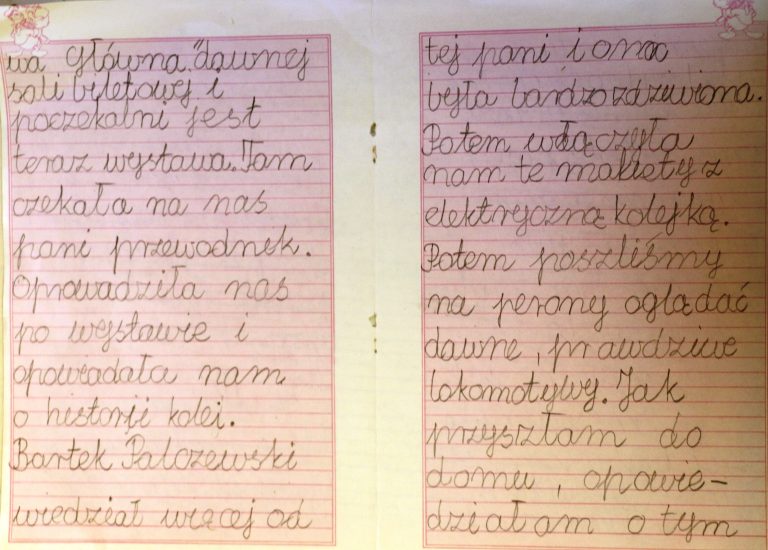 wa Główna. "dawnej
sali biletowej i
poczekalni jest
teraz wystawa. Tam
czekała na nas
pani przewodnik.
Oprowadziła nas
po wystawie i
opowiadała nam
o historji kolei.
Bartek Palczewski
wiedział więcej od
tej pani i ona
była bardzo zdziwiona.
Potem włączyła
nam te makiety z
elektryczną kolejką.
Potem poszliśmy
na perony oglądać
dawne, prawdziwe
lokomotywy. Jak
przyszłam do
domu, opowie-
działam o tym